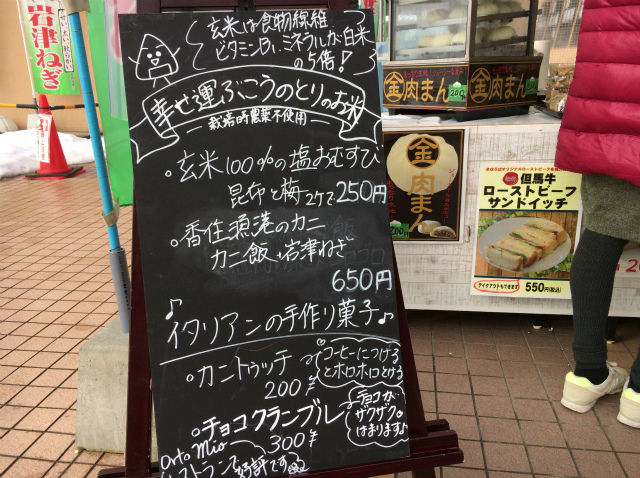 玄米は食物繊維
ビタミンB1、ミネラルが白米
の5倍!
幸せ運ぶこうのとりのお米
栽培時農薬不使用
・玄米100%の塩おむすび
昆布と梅 2ケで250円
・香住漁港のカニ
カニ飯+岩津ねぎ
650円
♪イタリアンの手作り菓子♪
・カントゥッチ
200円
コーヒーにつける
とホロホロとける
・チョコクランブル
300円
チョコが
ザクザク。
はまります♪
Orto
Mio
レストランで
好評です
岩津ねぎ
金 肉まん
200
金 肉まん
金
肉まん
200
但馬牛
ローストビーフ
サンドイッチ
テイクアウトもできます
550円(税込)